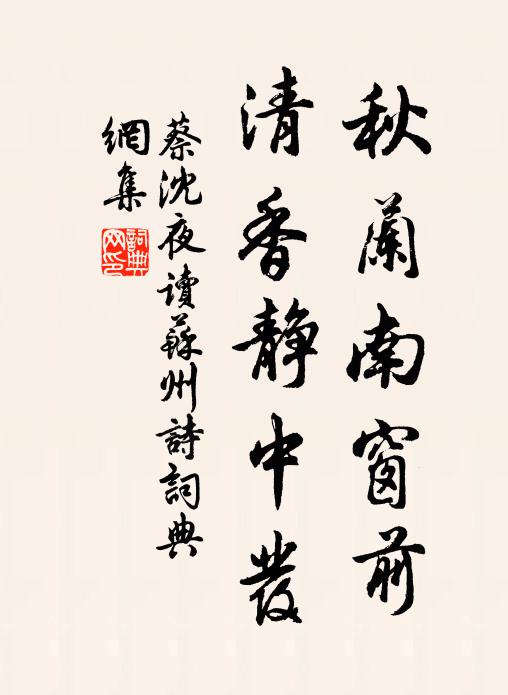 秋蘭南窗前
清香静中發
蔡沈夜讀蘇州詩詞典
網集
詞典
網印